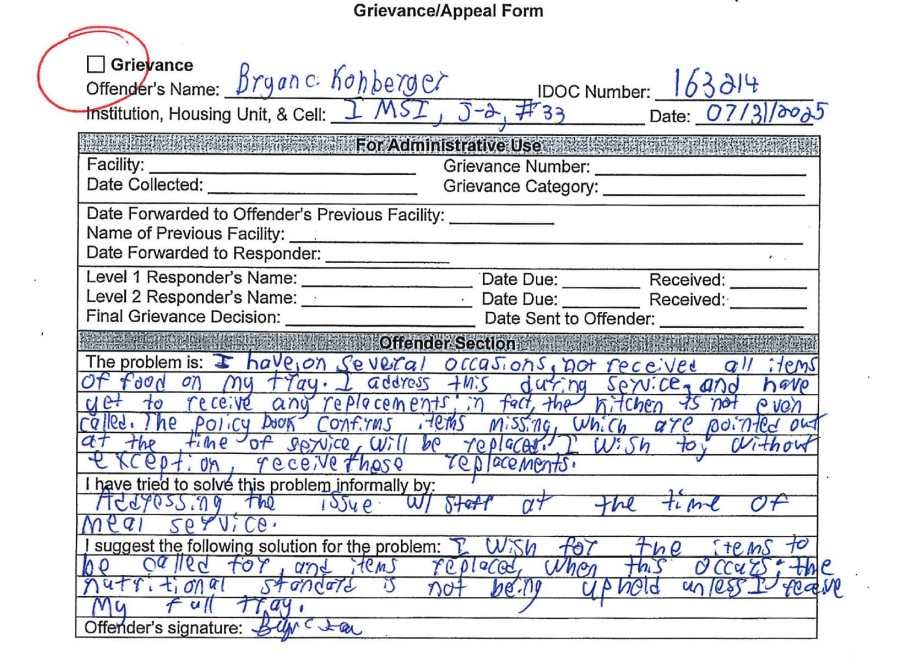 Grievance/Appeal Form
☐ Grievance
Offender's Name: Bryan C. Kohberger IDOC Number: 163214
Institution, Housing Unit, & Cell: IMSI, J-2, #33 Date: 07/31/2025
For Administrative Use
Facility: Grievance Number:
Date Collected: Grievance Category:
Date Forwarded to Offender's Previous Facility:
Name of Previous Facility:
Date Forwarded to Responder:
Level 1 Responder's Name: Date Due: Received:
Level 2 Responder's Name: Date Due: Received:
Final Grievance Decision: Date Sent to Offender:
Offender Section
The problem is: I have, on several occasions, not received all items
of food on my tray. I address this during service, and have
yet to receive any replacements; in fact, the kitchen is not even
called. The policy book confirms items missing, which are pointed out
at the time of service, will be replaced. I wish to, without
exception, receive these replacements.
I have tried to solve this problem informally by:
Addressing the issue w/ staff at the time of
meal service.
I suggest the following solution for the problem: I wish for the items to
be called for, and items replaced, when this occurs; the
nutritional standard is not being upheld unless I receive
my full tray.
Offender's signature: